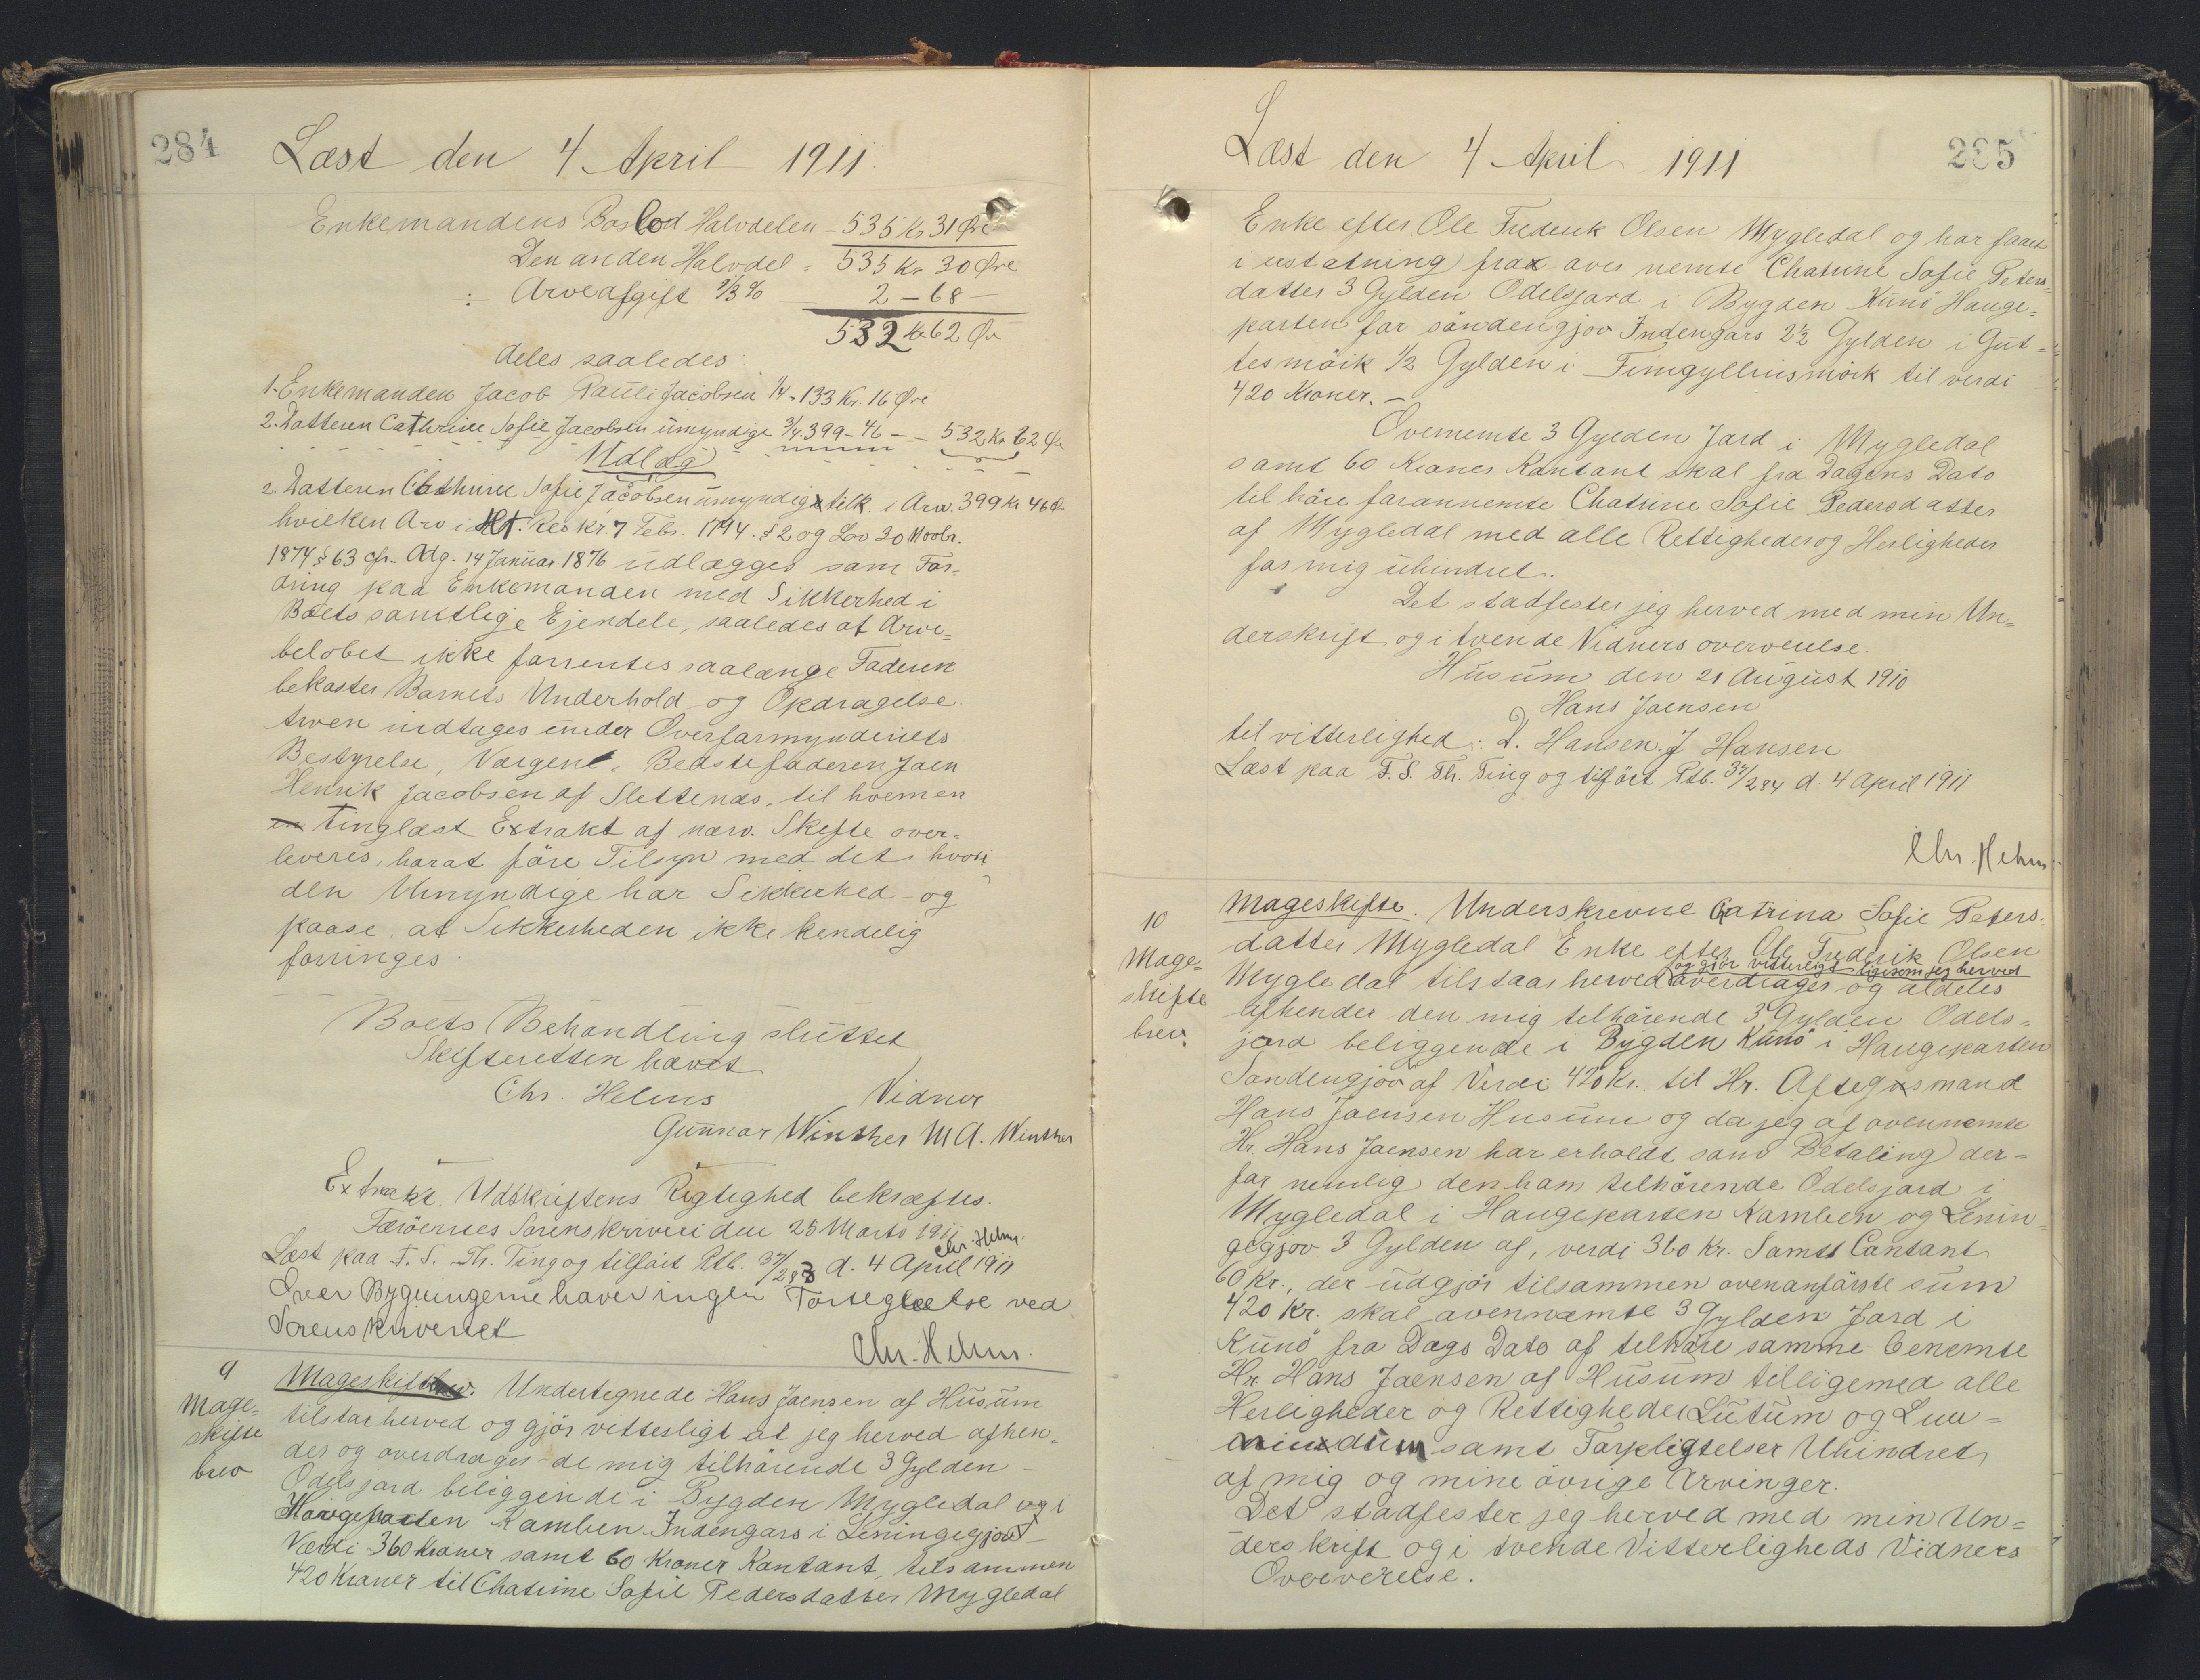 284
Læst den 4 April 1911.
Enkemandens Boslod Halvdelen - 535 Kr 31 Øre
Den anden Halvdel = 535 Kr 30 Øre
÷ Arveafgift ½% 2 - 68 -
532 Kr 62 Ør
deles saaledes
1. Enkemanden Jacob Pauli Jacobsen ¼ - 133 Kr. 16 Øre
2. Datteren Cathrine Sofie Jacobsen umyndige ¾ 399 - 46 - - 532 Kr 62 Ør
Udlæg
2. Datteren Cathrine Sofie Jacobsen umyndig tilk. i Arv. 399 Kr 46 Ø.
hvilken Arv i Ht. Reskr. 7 Febr. 1794. § 2 og Lov 30 Novbr.
1874 § 63 cfr. Adg. 14 Januar 1876 udlægges som For-
dring paa Enkemanden med Sikkerhed i
Boets samtlige Ejendele, saaledes at Arve=
belobet ikke forrentes saalænge Faderen
bekoster Barnets Underhold og Opdragelse.
Arven indtages under Overformynderiets
Bestyrelse, Værgen, Bedstefaderen Joen
Henrik Jacobsen af Slettenæs, til hvem en
tinglæst Extrakt af nærv. Skifte over-
leveres, har at före Tilsyn med det, hvori
den Umyndige har Sikkerhed - og
paase, at Sikkerheden ikke kendelig
forringes.
Boets Behandling sluttet
Skifteretten hævet
Chr. Helms Vidner
Gunnar Winther M A. Winther
Extrakt. Udskriftens Rigtighed bekræftes.
Færöernes Sorenskriveri den 25 Marts 1911
Chr. Helms.
Læst paa F. S. Th. Ting og tilfört Ptb. 37/283 d. 4 April 1911
Over Bygningerne haves ingen Forsegleelse ved
Sorenskriveriet
Chr. Helms.
9
Mage=
skifte
brev
Mageskiftebrev. Undertegnede Hans Joensen af Húsum
tilstar herved og gjör vitterligt at jeg herved afhen-
der og overdrager de mig tilhörende 3 Gylden
Odelsjord beliggende i Bygden Mygledal og i
Haugeparten Kamben Indengars i Leningegjov
Værdi 360 Kroner samt 60 Kroner Kontant, tilsammen
420 Kroner til Chatrine Sofie Pedersdatter Mygledal
Læst den 4 April 1911
285
Enke efter Ole Frederik Olsen Mygledal og har faaet
i ustatning fra oven nemte Chatrine Sofie Peters=
datter 3 Gylden Odelsjord i Bygden Kunö Hauge=
parten för söndengjov Indengars 2½ Gylden i Gut=
tesmörk ½ Gylden i Finngyllnismörk til verdi
420 Kroner. -
Ovennemte 3 Gylden Jord i Mygledal
samt 60 Kroner Kontant skal fra Dagens Dato
til höre forannemte Chatrine Sofie Pedersdatter
af Mygledal med alle Rettigheder og Herligheder
for mig uhindret.
Det stadfester jeg herved med min Un=
derskrift og i tvende Vidners oververelse.
Húsum den 21 August 1910
Hans Joensen
til vitterlighed: D. Hansen. J Hansen
Læst paa F. S. Th. Ting og tilfört Ptb. 37/284 d. 4 April 1911
Chr. Helms
10
Mage=
skifte
brev.
Mageskifte. Underskrevne Catrina Sofie Peters-
datter Mygledal Enke efter Ole Frederik Olsen
og gjör vitterligt ligesom jeg herved
Mygledal tilstaar herved overdrager og aldeles
afhender den mig tilhörende 3 Gylden Odels=
jord beliggende i Bygden Kunö i Haugeparten
Söndengjov af Verdi 420 Kr. til Hr. Aftegtsmand
Hans Joensen Husum og da jeg af ovennemte
Hr. Hans Joensen har erholdt som Betaling der=
for nemlig den ham tilhörende Odelsjord i
Mygledal i Haugeparten Kamben og Lenin=
gegjov 3 Gylden af, verdi 360 Kr. Samt Contant
60 Kr., der udgjör tilsammen ovenanförste sum
420 Kr. skal ovennæmte 3 Gylden Jord i
Kunö fra Dags Dato af tilhöre samme benemte
Hr. Hans Joensen af Húsum tilligemed alle
Herligheder og Rettigheder Lutum og Luu=
nindum samt Forpligtelser Uhindret
af mig og mine övrige Arvinger.
Det stadfester jeg herved med min Un=
derskrift og i tvende Vitterligheds Vidners
Ovververelse.